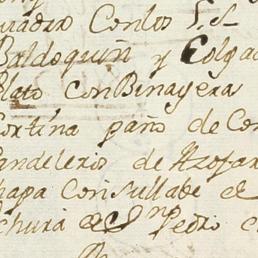 Con los S.S.
Baldoquin y Colga
Plato con Binagera
Cortina paño de Co
andelero de Azofar
hapa Consullabe el
chura de Sn Pedro e